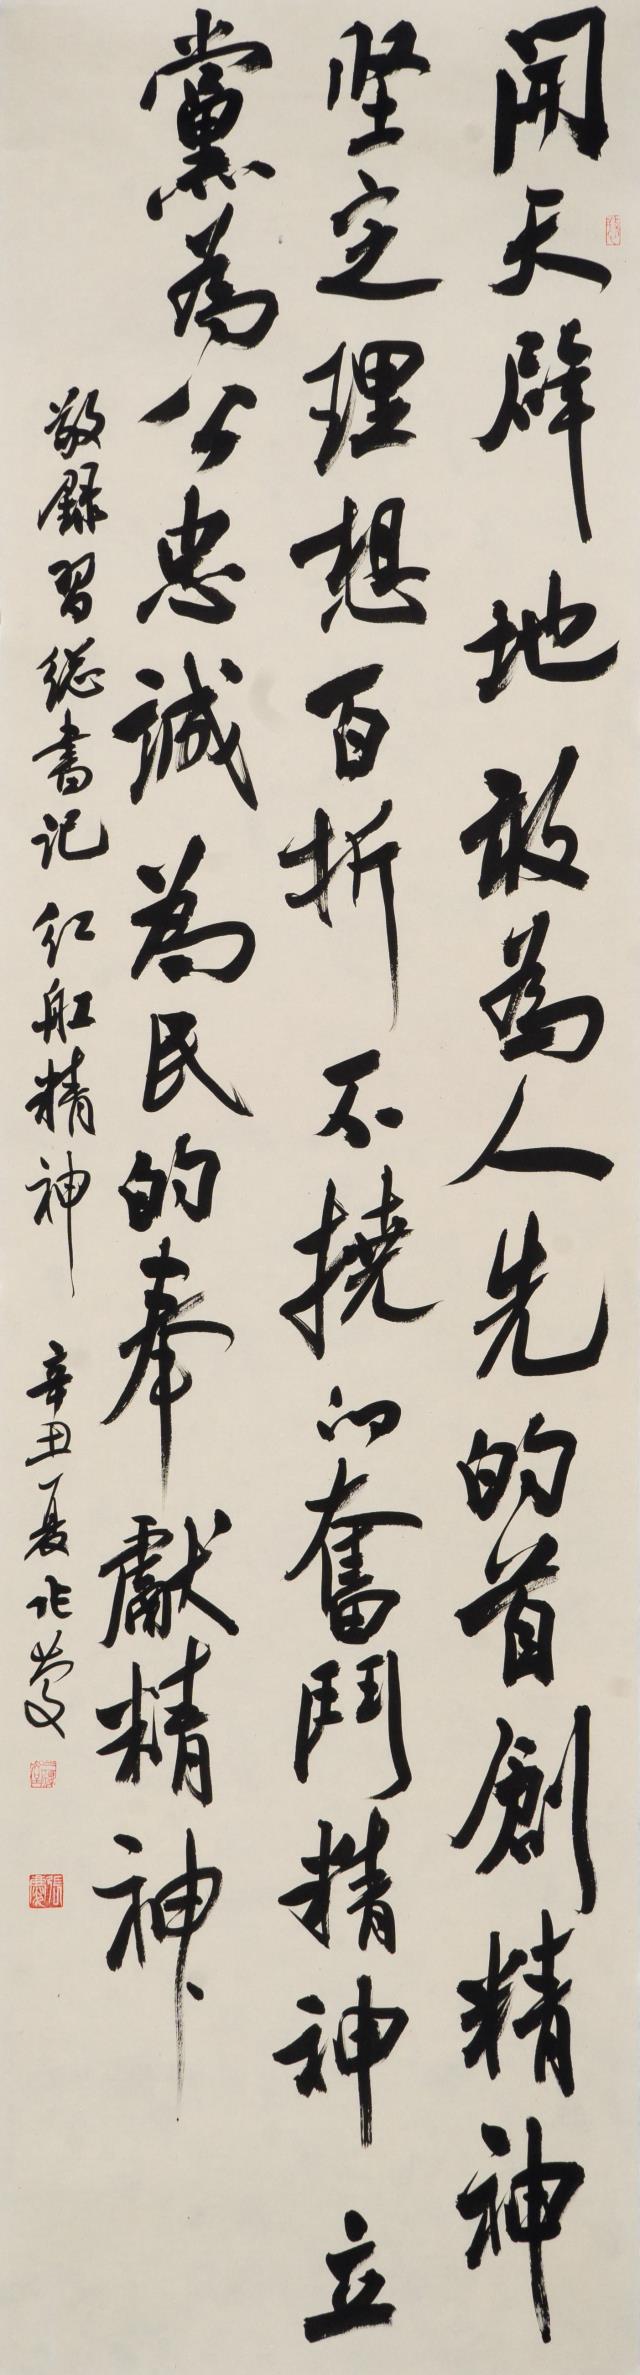 開天辟地敢為人先的首創精神
坚定理想百折不撓的奮鬥精神立
黨為公忠誠為民的奉獻精神
敬録習總書记红船精神 辛丑夏张慶